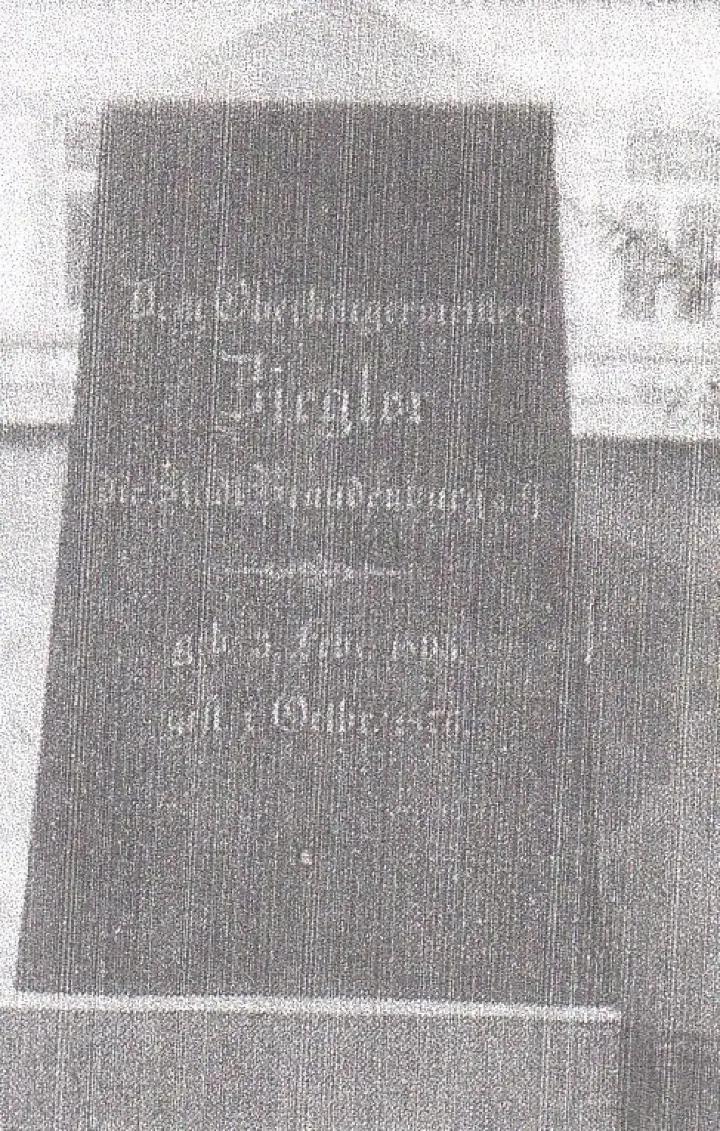 Dem Oberbürgermeister
Ziegler
die Stadt Brandenburg a/H
geb. 3. Febr.
gest. Octbr.